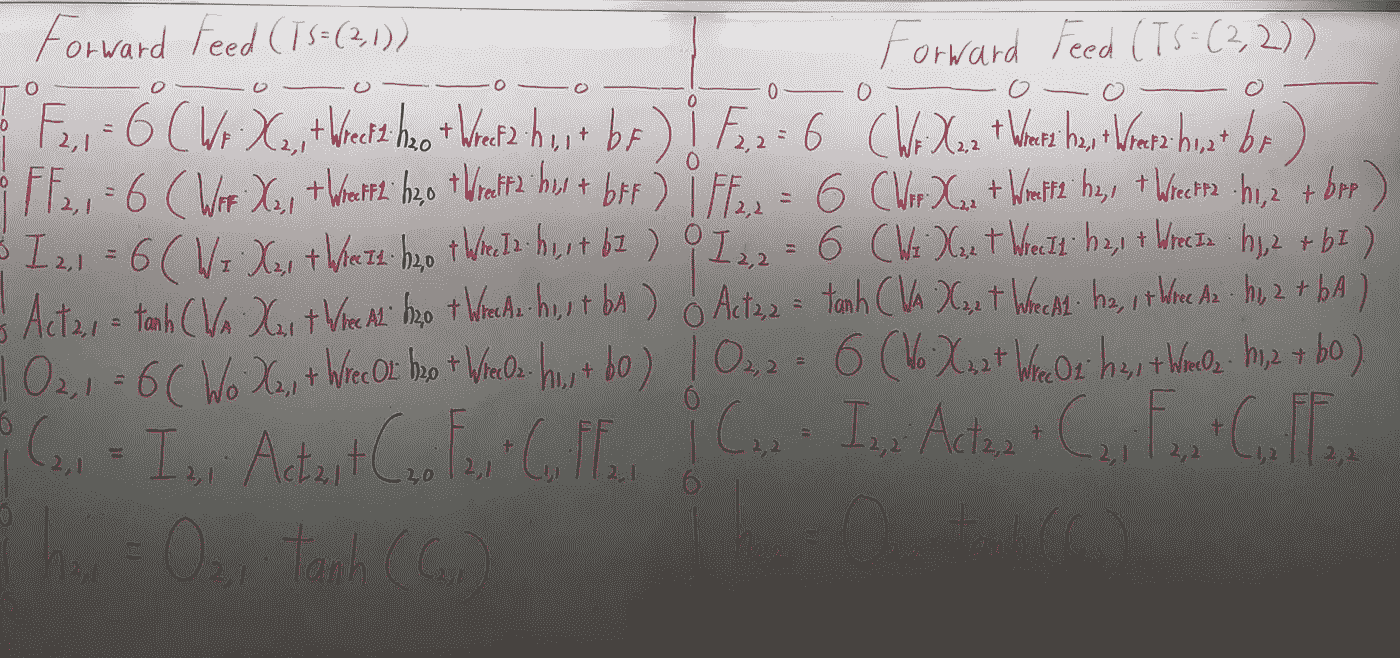 Forward Feed (TS=(2,1))
F2,1 = 6 (WF·X2,1 + WrecF1·h2,0 + WrecF2·h1,1 + bF)
FF2,1 = 6 (WFF·X2,1 + WrecFF1·h2,0 + WrecFF2·h1,1 + bFF)
I2,1 = 6 (WI·X2,1 + WrecI1·h2,0 + WrecI2·h1,1 + bI)
Act2,1 = tanh (WA·X2,1 + WrecA1·h2,0 + WrecA2·h1,1 + bA)
O2,1 = 6 (WO·X2,1 + WrecO1·h2,0 + WrecO2·h1,1 + bO)
C2,1 = I2,1·Act2,1 + C2,0·F2,1 + C1,1·FF2,1
h2,1 = O2,1·tanh (C2,1)
Forward Feed (TS=(2,2))
F2,2 = 6 (WF·X2,2 + WrecF1·h2,1 + WrecF2·h1,2 + bF)
FF2,2 = 6 (WFF·X2,2 + WrecFF1·h2,1 + WrecFF2·h1,2 + bFF)
I2,2 = 6 (WI·X2,2 + WrecI1·h2,1 + WrecI2·h1,2 + bI)
Act2,2 = tanh (WA·X2,2 + WrecA1·h2,1 + WrecA2·h1,2 + bA)
O2,2 = 6 (WO·X2,2 + WrecO1·h2,1 + WrecO2·h1,2 + bO)
C2,2 = I2,2·Act2,2 + C2,1·F2,2 + C1,2·FF2,2